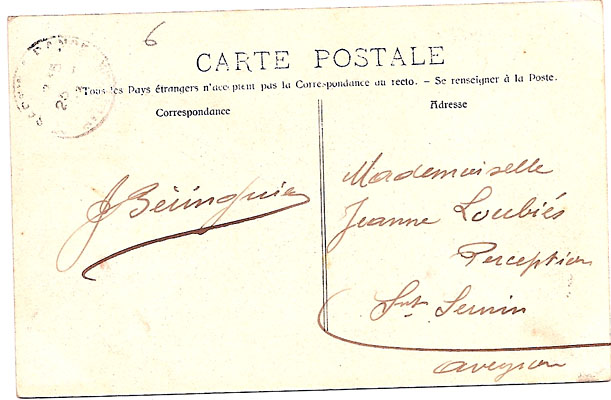 6
CARTE POSTALE
Tous les Pays étrangers n'acceptent pas la Correspondance au recto. - Se renseigner à la Poste.
Correspondance
Adresse
Mademoiselle
Jeanne Loubiés
Perception
St Sernin
Aveyron